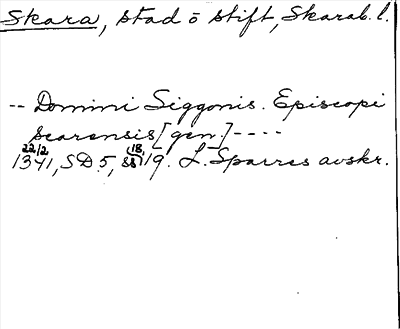 Skara, stad o stift, Skarab. l.
-- Domini Siggonis. Episcopi
scarensis [gen.] ----
22/2 1341, SD 5, s. 18, 19. L. Sparres avskr.